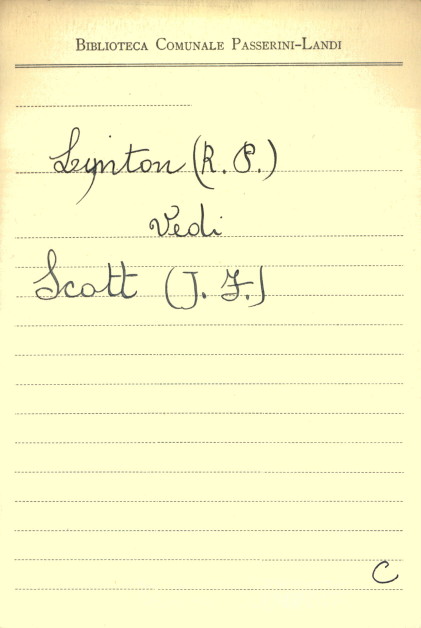 BIBLIOTECA COMUNALE PASSERINI-LANDI
Lynton (R. P.)
Vedi
Scott (J. F.)
C